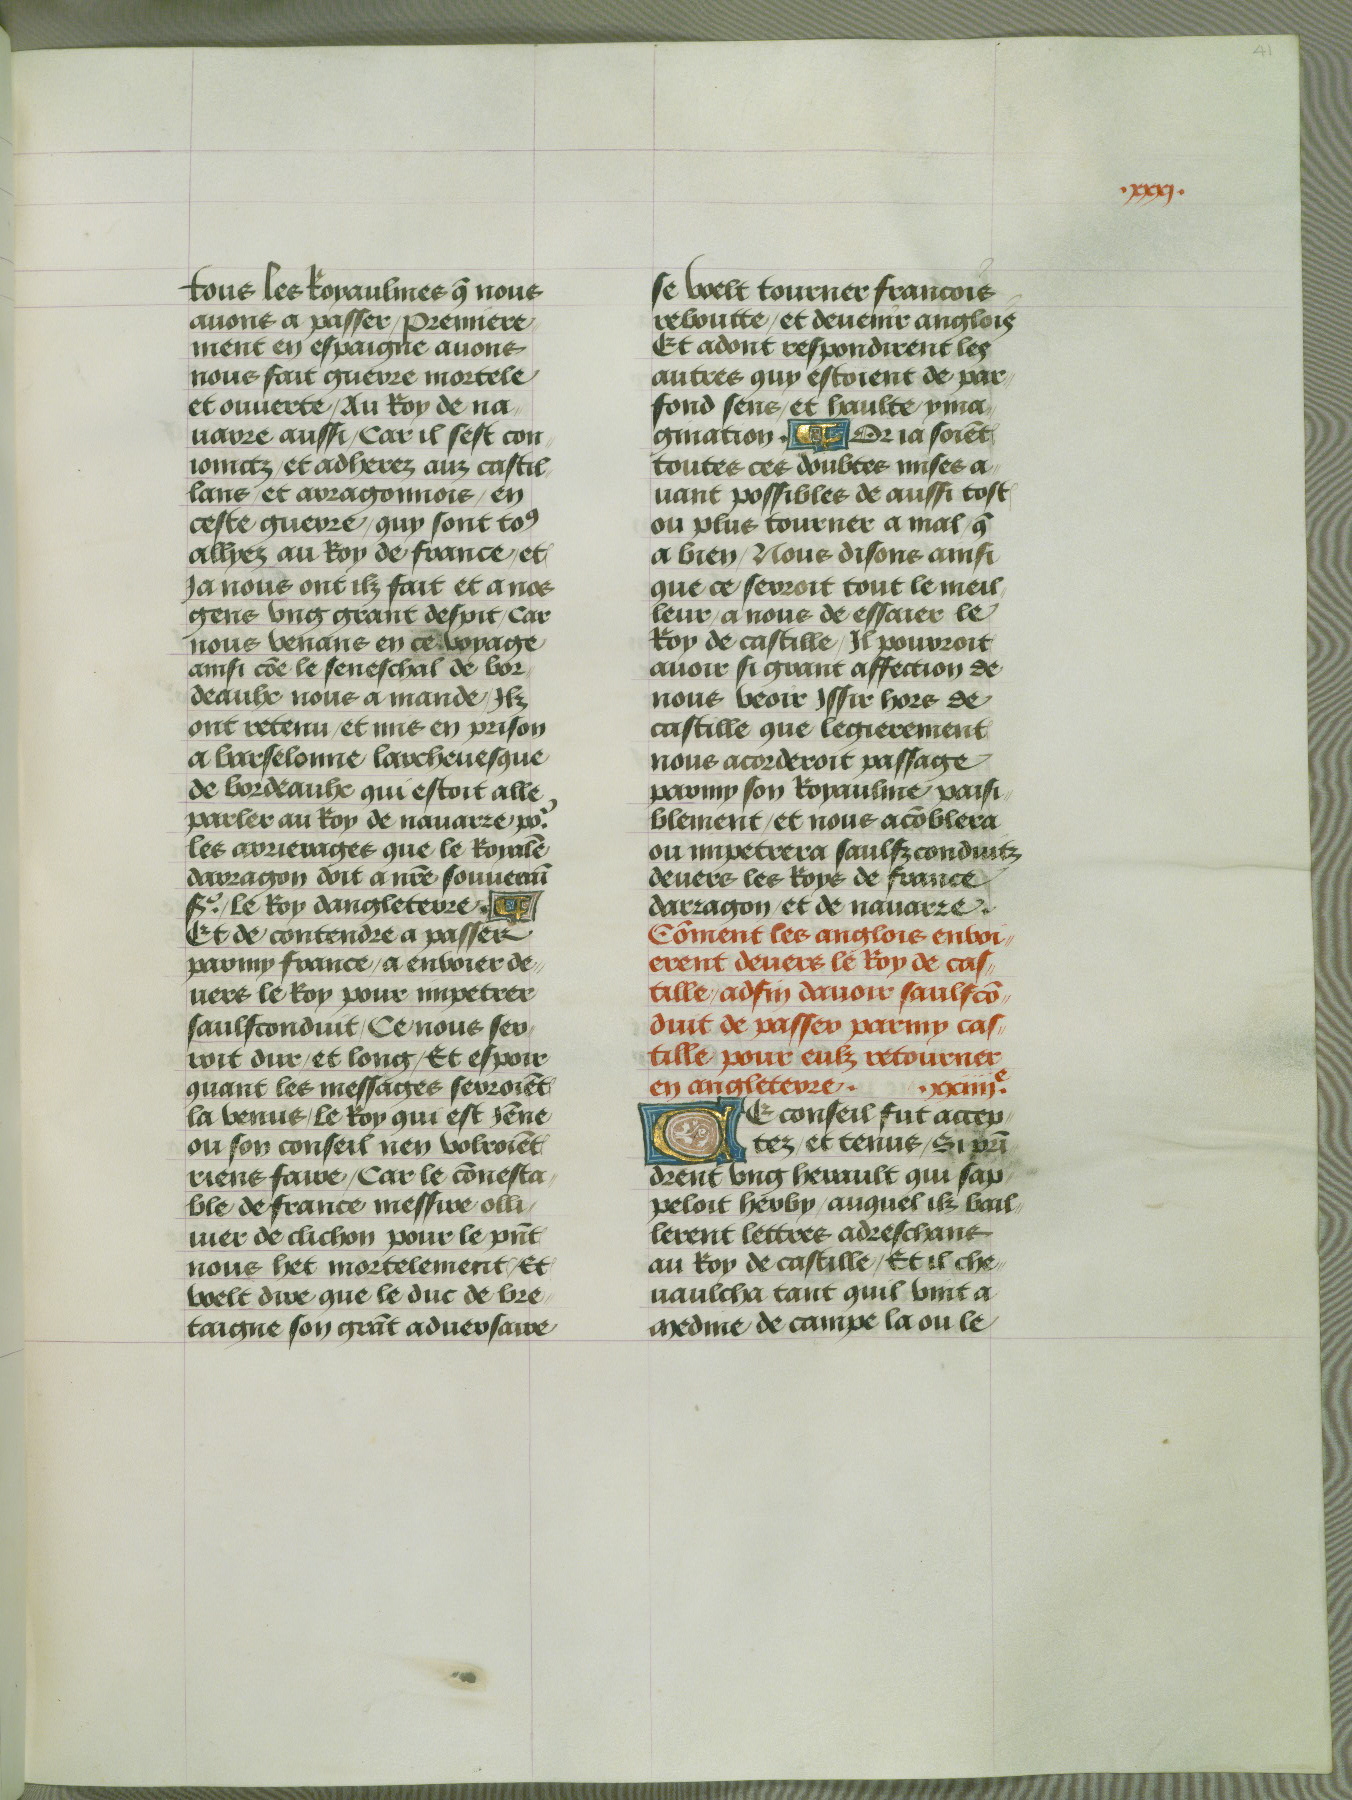 41
·xxxj·
tous les Royaulmes q̃ nous
auons a passer / Premiere
ment en espaigne auons
nous fait guerre mortele
et ouuerte / Au Roy de na„
uarre aussi / Car il sest con„
ioinctz / et adherez auz castil„
lans / et arragonnois / en
ceste guerre / quy sont toꝰ
allyez au Roy de france / et
Ja nous ont ilz fait et a nos
gens vng grant despit / Car
nous venans en ce voyage
ainsi cõe le seneschal de bor„
deaulx nous a mande / Ilz
ont retenu / et mis en prison
a barselonne larcheuesque
de bordeaulx qui estoit alle
parler au Roy de nauarre po.ʳ
les arrierages que le Royalẽ
darragon doit a nr̃e souuerai̅
sʳ. / le Roy dangleterre ·
Et de contendre a passer
parmy france / a enuoier de„
uers le Roy pour impetrer
saulfconduit / Ce nous ser„
roit dur / et long / Et espoir
quant les messages serroiẽt
la venus / le Roy qui est Jẽne
ou son conseil nen volroiẽt
riens faire / Car le cõnesta„
ble de france messire olli„
uier de clichon pour le pñt
nous het mortelement / Et
voelt dire que le duc de bre„
taigne son grãt aduersaire
se voelt tourner francois
reboutte / et deuenir anglois
Et adont respondirent les
autres quy estoient de par„
fond sens / et haulte yma„
gination · Or ia soiẽt
toutes ces doubtes mises a„
uant possibles de aussi tost
ou plus tourner a mal / q̃
a bien / Nous disons ainsi
que ce serroit tout le meil„
leur / a nous de essaier le
Roy de castille / Il pourroit
auoir si grant affection de
nous veoir Issir hors de
castille que legierement
nous acorderoit passage
parmy son Royaulme paisi„
blement / et nous acõblera
ou impetrera saulfzconduitz
deuers les Roys de france
darragon / et de nauarre ·
Cõment les anglois enuoi„
erent deuers le Roy de cas„
tille / adfin dauoir saulfcõ„
duit de passer parmy cas„
tille pour eulz retourner
en angleterre · ·xxiiijᵉ
Ce conseil fut accep„
tez / et tenus / Si prĩ
drent vng herault qui sap„
peloit herby / auquel ilz bail„
lerent lettres adreschans
au Roy de castille / Et il che„
uaulcha tant quil vint a
medine de campe la ou le